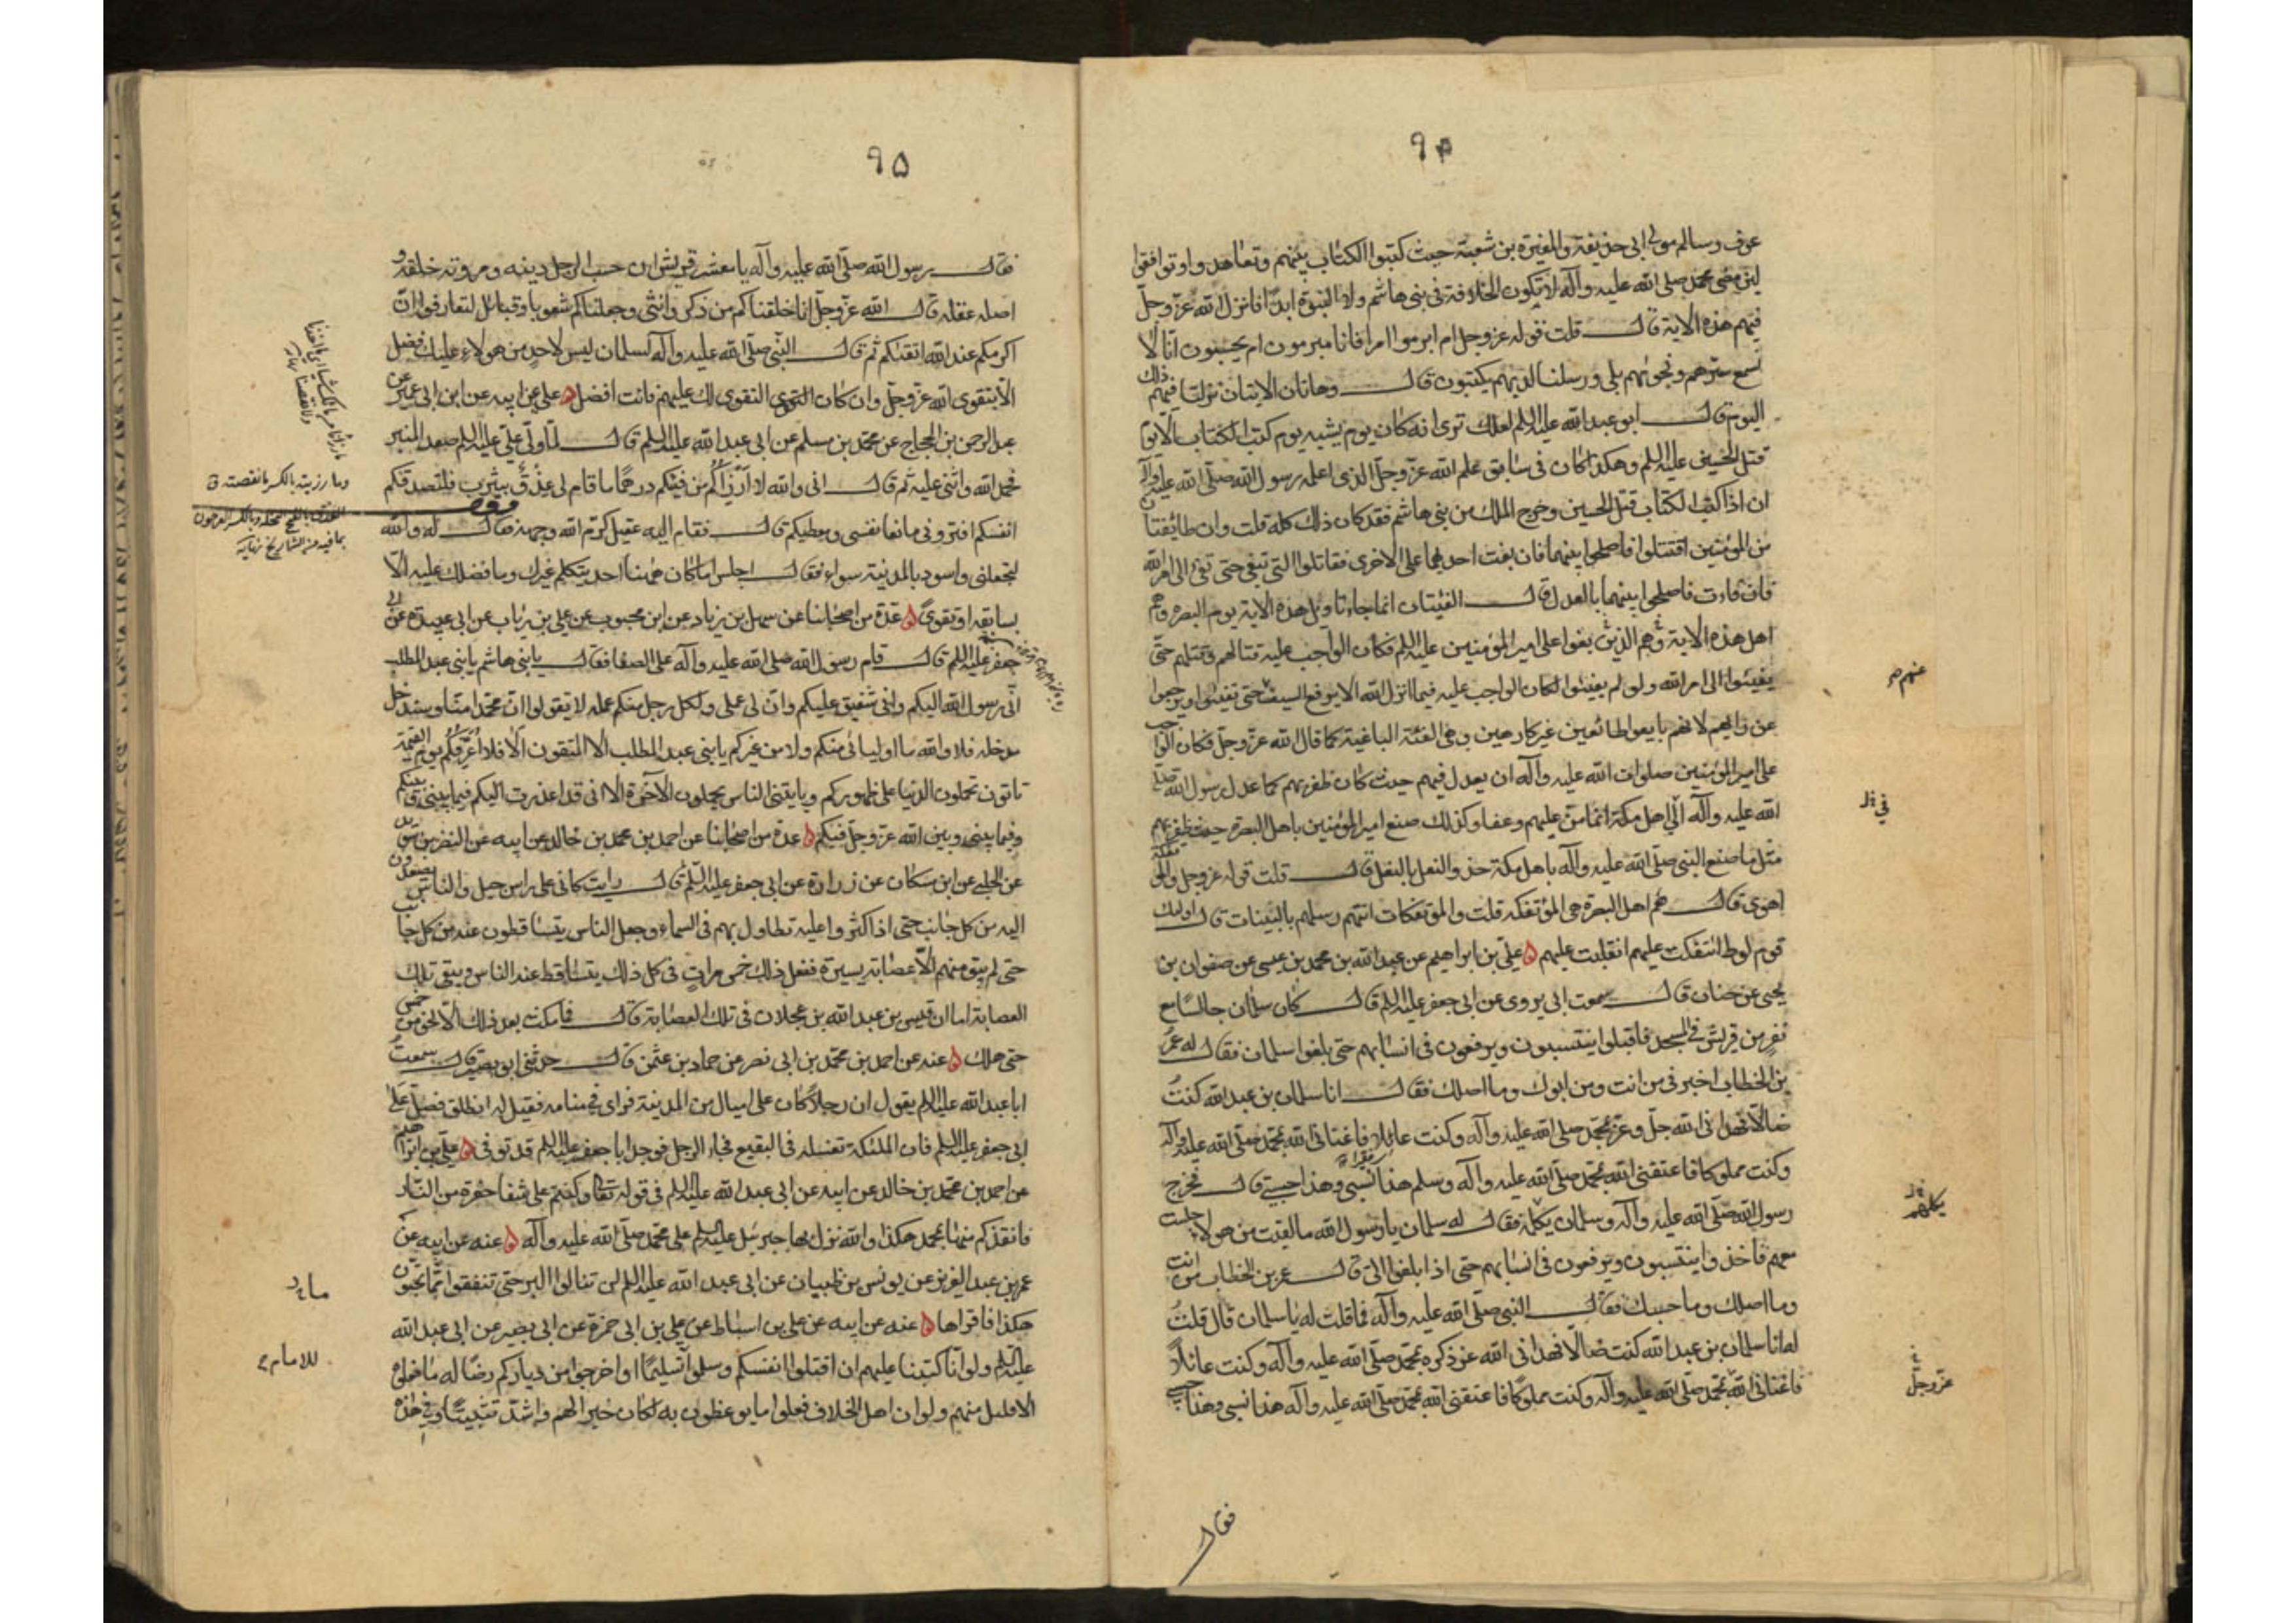 ٩٤
عوف وسالم مولى ابي حذيفة والمغيرة بن شعبة حيث كتبوا الكتاب بينهم وتعاهدوا وتوافقوا
لئن مضى محمد صلى الله عليه وآله لا تكون الخلافة في بني هاشم ولا النبوة ابدا فانزل الله عز وجل
فيهم هذه الآية قال قلت قوله عز وجل ام ابرموا امرا فانا مبرمون ام يحسبون انا لا
نسمع سرهم ونجويهم بلى ورسلنا لديهم يكتبون قال وهاتان الآيتان نزلتا فيهم ذلك
اليوم قال ابو عبد الله عليه السلم لعلك ترى انه كان يوم يشبه يوم كتب الكتاب الا يوم
قتل الحسين عليه السلم وهكذا كان في سابق علم الله عز وجل الذي اعلمه رسول الله صلى الله عليه وآله
ان اذا كتب الكتاب قتل الحسين وخرج الملك من بني هاشم فقد كان ذلك كله قلت وان طائفتان
من المؤمنين اقتتلوا فاصلحوا بينهما فان بغت احديهما على الاخرى فقاتلوا التي تبغي حتى تفئ الى امر الله
فان فاءت فاصلحوا بينهما بالعدل قال الفئتان انما جاء تاويل هذه الآية يوم البصرة وهم
اهل هذه الآية وهم الذين بغوا على امير المؤمنين عليه السلم فكان الواجب عليه قتالهم وقتلهم حتى
يفيئوا الى امر الله ولو لم يفيئوا لكان الواجب عليه فيما انزل الله الا يرفع السيف حتى تفيئوا ويرجعوا
عن رايهم لانهم بايعوا طائعين غير كارهين وهي الفئة الباغية كما قال الله عز وجل فكان الواجب
على امير المؤمنين صلوات الله عليه وآله ان يعدل فيهم حيث كان ظفر بهم كما عدل رسول الله صلى
الله عليه وآله الى اهل مكة انما من عليهم وعفا وكذلك صنع امير المؤمنين باهل البصرة حيث ظفر بهم
مثل ما صنع النبي صلى الله عليه وآله باهل مكة حذو النعل بالنعل قال قلت قوله عز وجل والمؤتفكة
اهوى قال هم اهل البصرة هي المؤتفكة قلت والمؤتفكات اتتهم رسلهم بالبينات قال اولئك
قوم لوط ائتفكت عليهم انقلبت عليهم ه علي بن ابراهيم عن عبد الله بن محمد بن عيسى عن صفوان بن
يحيى عن حنان قال سمعت ابي يروي عن ابي جعفر عليه السلم قال كان سلمان جالسا مع
نفر من قريش في المسجد فاقبلوا ينتسبون ويرفعون في انسابهم حتى بلغوا سلمان فقال له عمر
بن الخطاب اخبرني من انت ومن ابوك وما اصلك فقال انا سلمان بن عبد الله كنت
ضالا فهداني الله جل وعز بمحمد صلى الله عليه وآله وكنت عائلا فاغناني الله بمحمد صلى الله عليه وآله
وكنت مملوكا فاعتقني الله بمحمد صلى الله عليه وآله وسلم هذا نسبي وهذا حسبي قال فخرج
رسول الله صلى الله عليه وآله وسلمان يكلمه فقال له سلمان يا رسول الله ما لقيت من هولاء جلست
معهم فاخذوا ينتسبون ويرفعون في انسابهم حتى اذا بلغوا الي قال عمر بن الخطاب من انت
وما اصلك وما حسبك فقال النبي صلى الله عليه وآله فما قلت له يا سلمان قال قلت
له انا سلمان بن عبد الله كنت ضالا فهداني الله عز ذكره بمحمد صلى الله عليه وآله وكنت عائلا
فاغناني الله بمحمد صلى الله عليه وآله وكنت مملوكا فاعتقني الله بمحمد صلى الله عليه وآله هذا نسبي وهذا حسبي
فقال
عنهم
في
يكلمهم
عز وجل
٩٥
فقال رسول الله صلى الله عليه وآله يا معشر قريش ان حسب الرجل دينه ومروته خلقه و
اصله عقله قال الله عز وجل انا خلقناكم من ذكر وانثى وجعلناكم شعوبا وقبائل لتعارفوا ان
اكرمكم عند الله اتقيكم ثم قال النبي صلى الله عليه وآله لسلمان ليس لاحد من هولاء عليك فضل
الا بتقوى الله عز وجل وان كان التقوى لك عليهم فانت افضل ه علي عن ابيه عن ابن ابي عمير عن
عبد الرحمن بن الحجاج عن محمد بن مسلم عن ابي عبد الله عليه السلم قال لما ولي علي عليه السلم صعد المنبر
فحمد الله واثنى عليه ثم قال اني والله لا ارزأكم من فيئكم درهما ما قام لي عذق بيثرب فلتصدقكم
انفسكم افتروني مانعا نفسي ومعطيكم قال فقام اليه عقيل كرم الله وجهه فقال له والله
لتجعلني واسود بالمدينة سواء فقال اجلس اما كان ههنا احد يتكلم غيرك وما فضلك عليه الا
بسابقة او تقوى ه عدة من اصحابنا عن سهل بن زياد عن ابن محبوب عن علي بن رئاب عن ابي عبيدة عن ابي
جعفر عليه السلم قال قام رسول الله صلى الله عليه وآله على الصفا فقال يا بني هاشم يا بني عبد المطلب
اني رسول الله اليكم واني شفيق عليكم وان لي عملي ولكل رجل منكم عمله لا تقولوا ان محمدا منا وسندخل
مدخله فلا والله ما اوليائي منكم ولا من غيركم يا بني عبد المطلب الا المتقون الا فلا اعرفكم يوم القيمة
تاتون تحملون الدنيا على ظهوركم وياتيني الناس يحملون الآخرة الا اني قد اعذرت اليكم فيما بيني وبينكم
وفيما بيني وبين الله عز وجل فيكم ه عدة من اصحابنا عن احمد بن محمد بن خالد عن ابيه عن النضر بن سويد
عن الحلبي عن ابن مسكان عن زرارة عن ابي جعفر عليه السلم قال رايت كاني على راس جبل والناس يصعدون
اليه من كل جانب حتى اذا كثروا عليه تطاول بهم في السماء وجعل الناس يتساقطون عنه من كل جانب
حتى لم يبق منهم الا عصابة يسيرة ففعل ذلك خمس مرات في كل ذلك يتساقط عنه الناس ويبقى تلك
العصابة اما ان قيس بن عبد الله بن عجلان في تلك العصابة قال فما مكث بعد ذلك الا نحو من خمس
حتى هلك ه عنه عن احمد بن محمد بن ابي نصر عن حماد بن عثمن قال حدثني ابو بصير قال سمعت
ابا عبد الله عليه السلم يقول ان رجلا كان على اميال من المدينة فراى في منامه فقيل له انطلق فصل على
ابي جعفر عليه السلم فان الملئكة تغسله في البقيع فجاء الرجل فوجد ابا جعفر عليه السلم قد توفي ه علي بن ابراهيم
عن احمد بن محمد بن خالد عن ابيه عن ابي عبد الله عليه السلم في قوله تعالى وكنتم على شفا حفرة من النار
فانقذكم منها بمحمد هكذا والله نزل بها جبرئيل عليه السلم على محمد صلى الله عليه وآله ه عنه عن ابيه عن
عمر بن عبد العزيز عن يونس بن ظبيان عن ابي عبد الله عليه السلم لن تنالوا البر حتى تنفقوا مما تحبون
هكذا فاقراها ه عنه عن ابيه عن علي بن اسباط عن علي بن ابي حمزة عن ابي بصير عن ابي عبد الله
عليه السلم ولو انا كتبنا عليهم ان اقتلوا انفسكم وسلموا تسليما او اخرجوا من دياركم رضا له ما فعلوه
الا قليل منهم ولو ان اهل الخلاف فعلوا ما يوعظون به لكان خيرا لهم واشد تثبيتا وفي هذه
وما رزيته بالكسر ما نقصته ق
العذق بالفتح النخلة وبالكسر العرجون
بما فيه من الشماريخ نهاية
ما
للامام